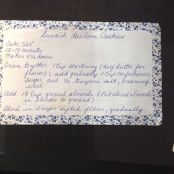 Swedish Heirloom Cookies
Oven 325°
12-15 minutes
Makes 4½ dozen
Cream together 1 cup shortening (half butter for
flavor); add gradually 1 cup confectioners
sugar and ½ teaspoon salt, creaming
well.
Add 1¼ cup ground almonds (Put sliced almonds
in blender to ground)
Blend in sifted flour, gradually